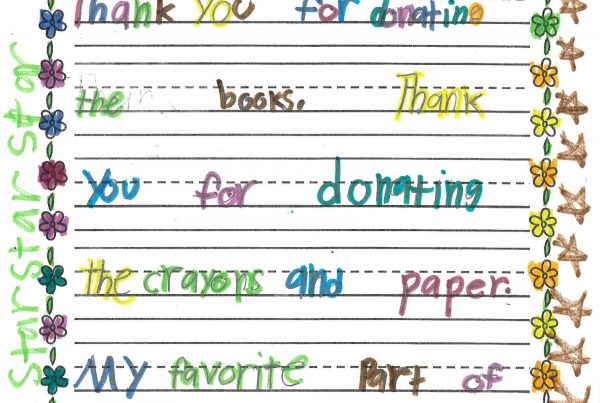 Thank you for donating
the books. Thank
you for donating
the crayons and paper.
My favorite Part of
star star star